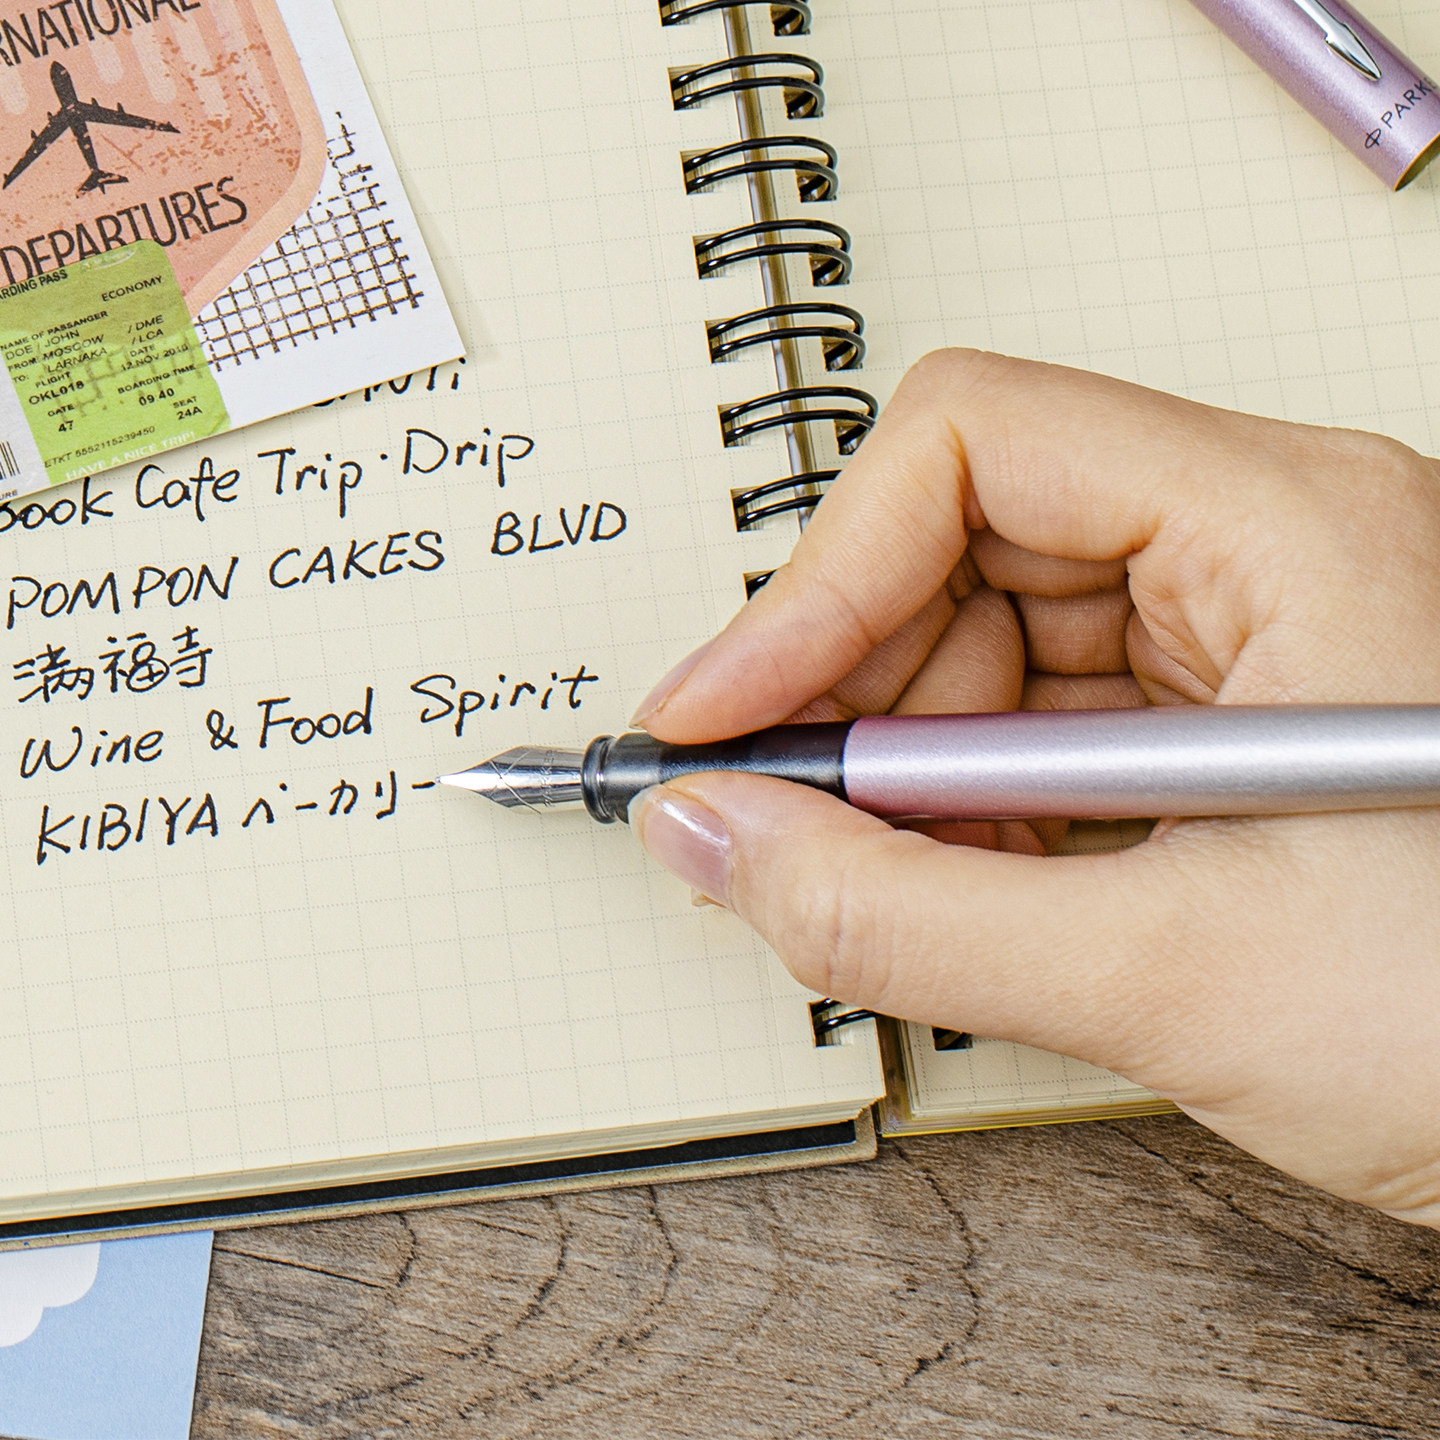 DEPARTURES
ECONOMY
NAME OF PASSANGER
DOE / JOHN / DME
FROM: MOSCOW / LCA
TO: LARNAKA DATE
FLIGHT 12 NOV 2019
OKL018 BOARDING TIME
GATE 09 40
47 SEAT
24A
ETKT 5552115239450
HAVE A NICE TRIP!
Cafe Trip・Drip
POMPON CAKES BLVD
満福寺
Wine & Food Spirit
KIBIYA ベーカリー